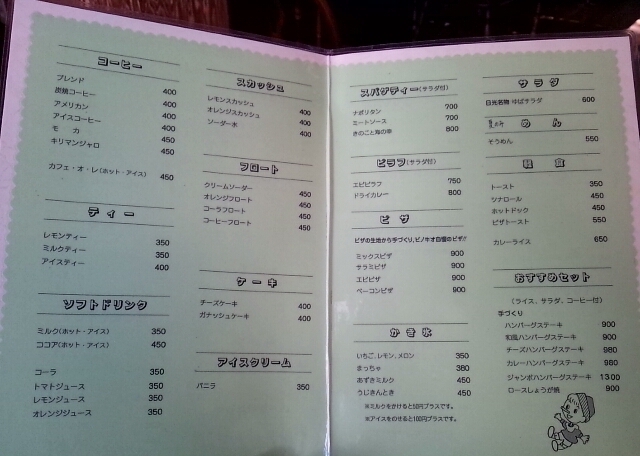 コーヒー
ブレンド 400
炭焼コーヒー 400
アメリカン 400
アイスコーヒー 400
モカ 450
キリマンジャロ 450
カフェ・オ・レ(ホット・アイス) 450
ティー
レモンティー 350
ミルクティー 350
アイスティー 400
ソフトドリンク
ミルク(ホット・アイス) 350
ココア(ホット・アイス) 450
コーラ 350
トマトジュース 350
レモンジュース 350
オレンジジュース 350
スカッシュ
レモンスカッシュ 400
オレンジスカッシュ 400
ソーダー水 400
フロート
クリームソーダー 450
オレンジフロート 450
コーラフロート 450
コーヒーフロート 450
ケーキ
チーズケーキ 400
ガナッシュケーキ 400
アイスクリーム
バニラ 350
スパゲティー(サラダ付)
ナポリタン 700
ミートソース 700
きのこと海の幸 800
ピラフ(サラダ付)
エビピラフ 750
ドライカレー 800
ピザ
ピザの生地から手づくり、ピノキオ自慢のピザ!!
ミックスピザ 900
サラミピザ 900
エビピザ 900
ベーコンピザ 900
かき氷
いちご、レモン、メロン 350
まっちゃ 380
あずきミルク 450
うじきんとき 450
※ミルクをかけると50円プラスです。
※アイスをのせると100円プラスです。
サラダ
日光名物 ゆばサラダ 600
めん
そうめん 550
軽食
トースト 350
ツナロール 450
ホットドック 450
ピザトースト 550
カレーライス 650
おすすめセット
(ライス、サラダ、コーヒー付)
手づくり
ハンバーグステーキ 900
和風ハンバーグステーキ 900
チーズハンバーグステーキ 980
カレーハンバーグステーキ 980
ジャンボハンバーグステーキ 1300
ロースしょうが焼 900